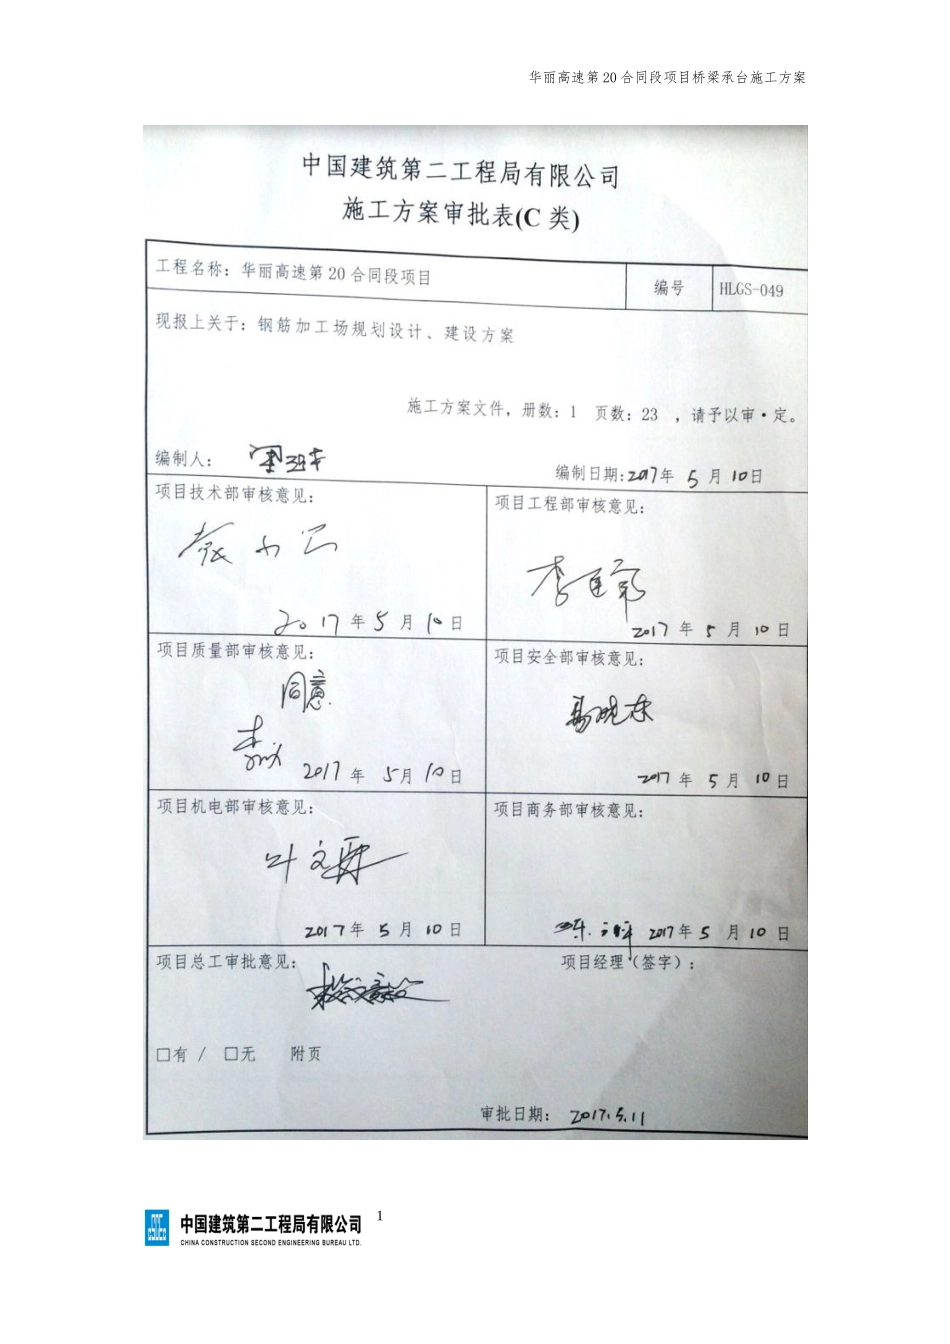 华丽高速第 20 合同段项目桥梁承台施工方案
中国建筑第二工程局有限公司
施工方案审批表(C 类)
工程名称：华丽高速第 20 合同段项目
编号
HLGS-049
现报上关于：钢筋加工场规划设计、建设方案
施工方案文件，册数：1 页数：23 ，请予以审·定。
编制人：
编制日期:2017年 5 月 10日
项目技术部审核意见：
2017 年 5 月 10 日
项目工程部审核意见：
2017 年 5 月 10 日
项目质量部审核意见：
同意
2017 年 5月 10 日
项目安全部审核意见：
2017 年 5 月 10 日
项目机电部审核意见：
叶文
2017 年 5 月 10 日
项目商务部审核意见：
2017年 5 月 10 日
项目总工审批意见：
项目经理（签字）：
□有 / □无 附页
审批日期： 2017.5.11
中国建筑第二工程局有限公司
CHINA CONSTRUCTION SECOND ENGINEERING BUREAU LTD.
1